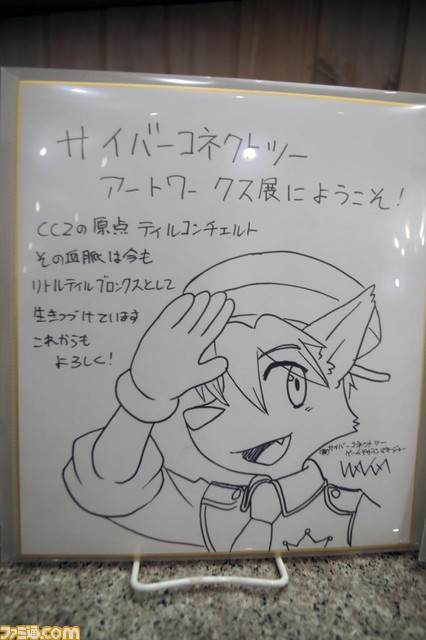 サイバーコネクトツー
アートワークス展にようこそ!
CC2の原点 テイルコンチェルト
その血脈は今も
リトルテイルブロンクスとして
生きつづけています
これからも
よろしく!
サイバーコネクトツー
ファミ通.com